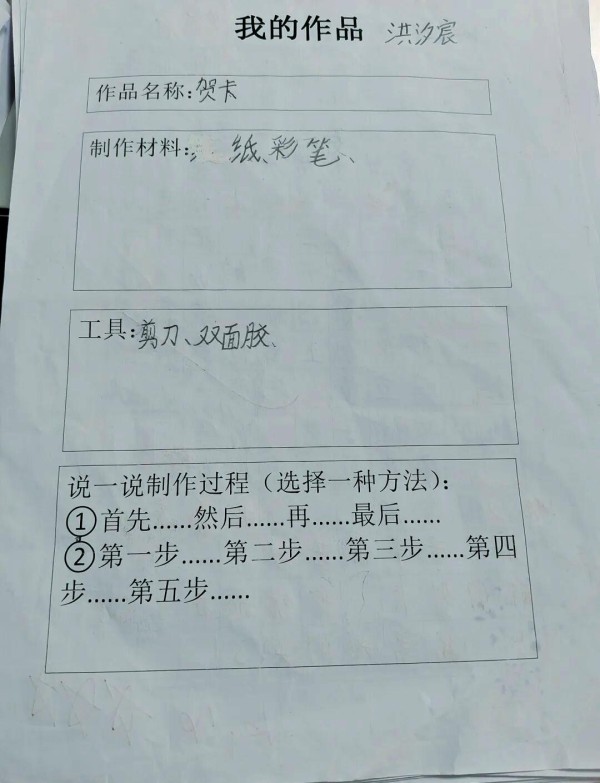 我的作品 洪汐宸
作品名称:贺卡
制作材料:; 纸、彩笔、
工具:剪刀、双面胶、
说一说制作过程（选择一种方法）:
①首先……然后……再……最后……
②第一步……第二步……第三步……第四
步……第五步……